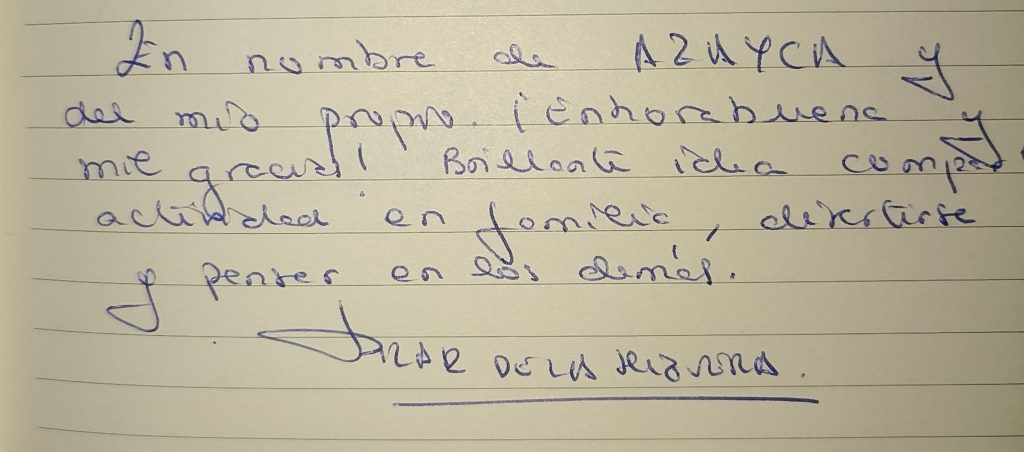 En nombre de AZAYCA y
del mío propio. ¡Enhorabuena y
mil gracias! Brillante idea
actividad en familia, divertirse
y pensar en los demás.
DE LA